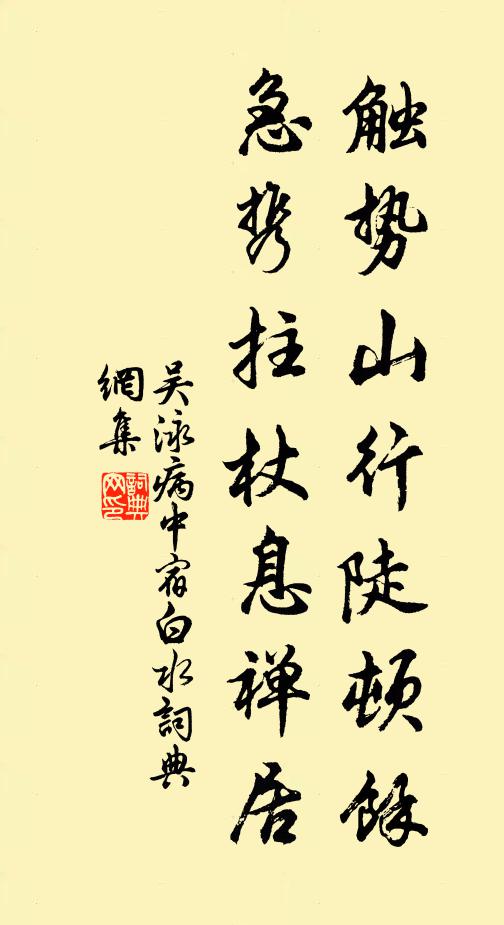 触势山行陡顿馀
急携拄杖息禅居
吴泳病中宿白水詞典
網集
詞典网印